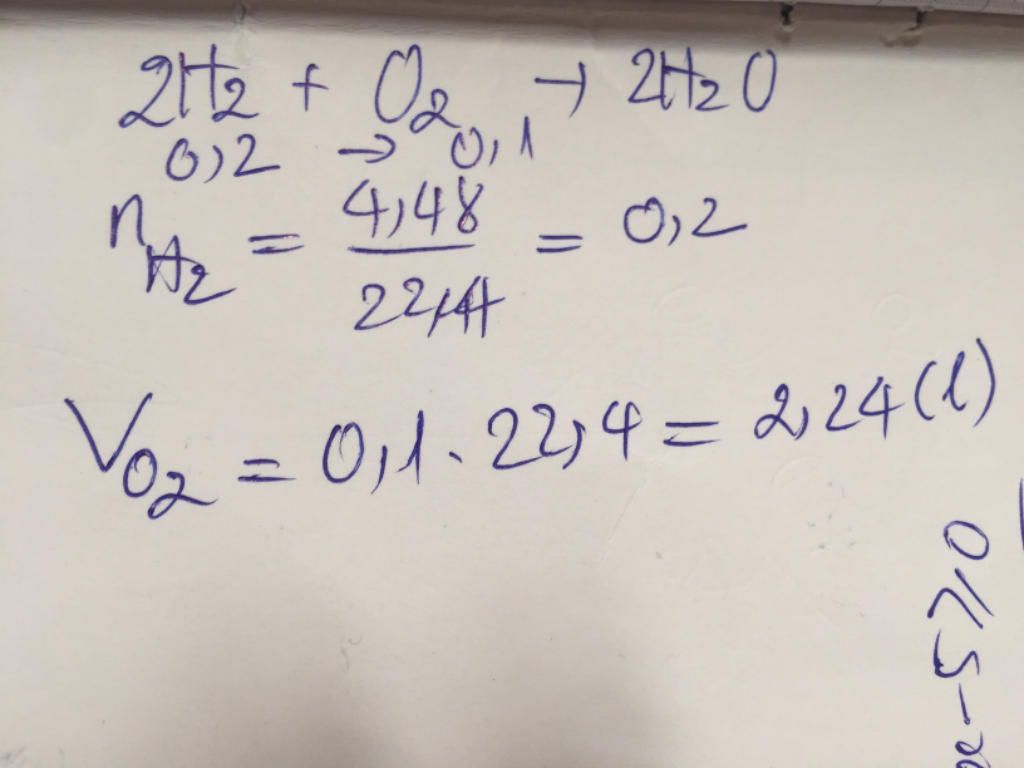 2H₂ + O₂ → 2H₂O
0,2 → 0,1
n_H₂ = 4,48 / 22,4 = 0,2
V_O₂ = 0,1 . 22,4 = 2,24 (l)
-5 ⩾ 0